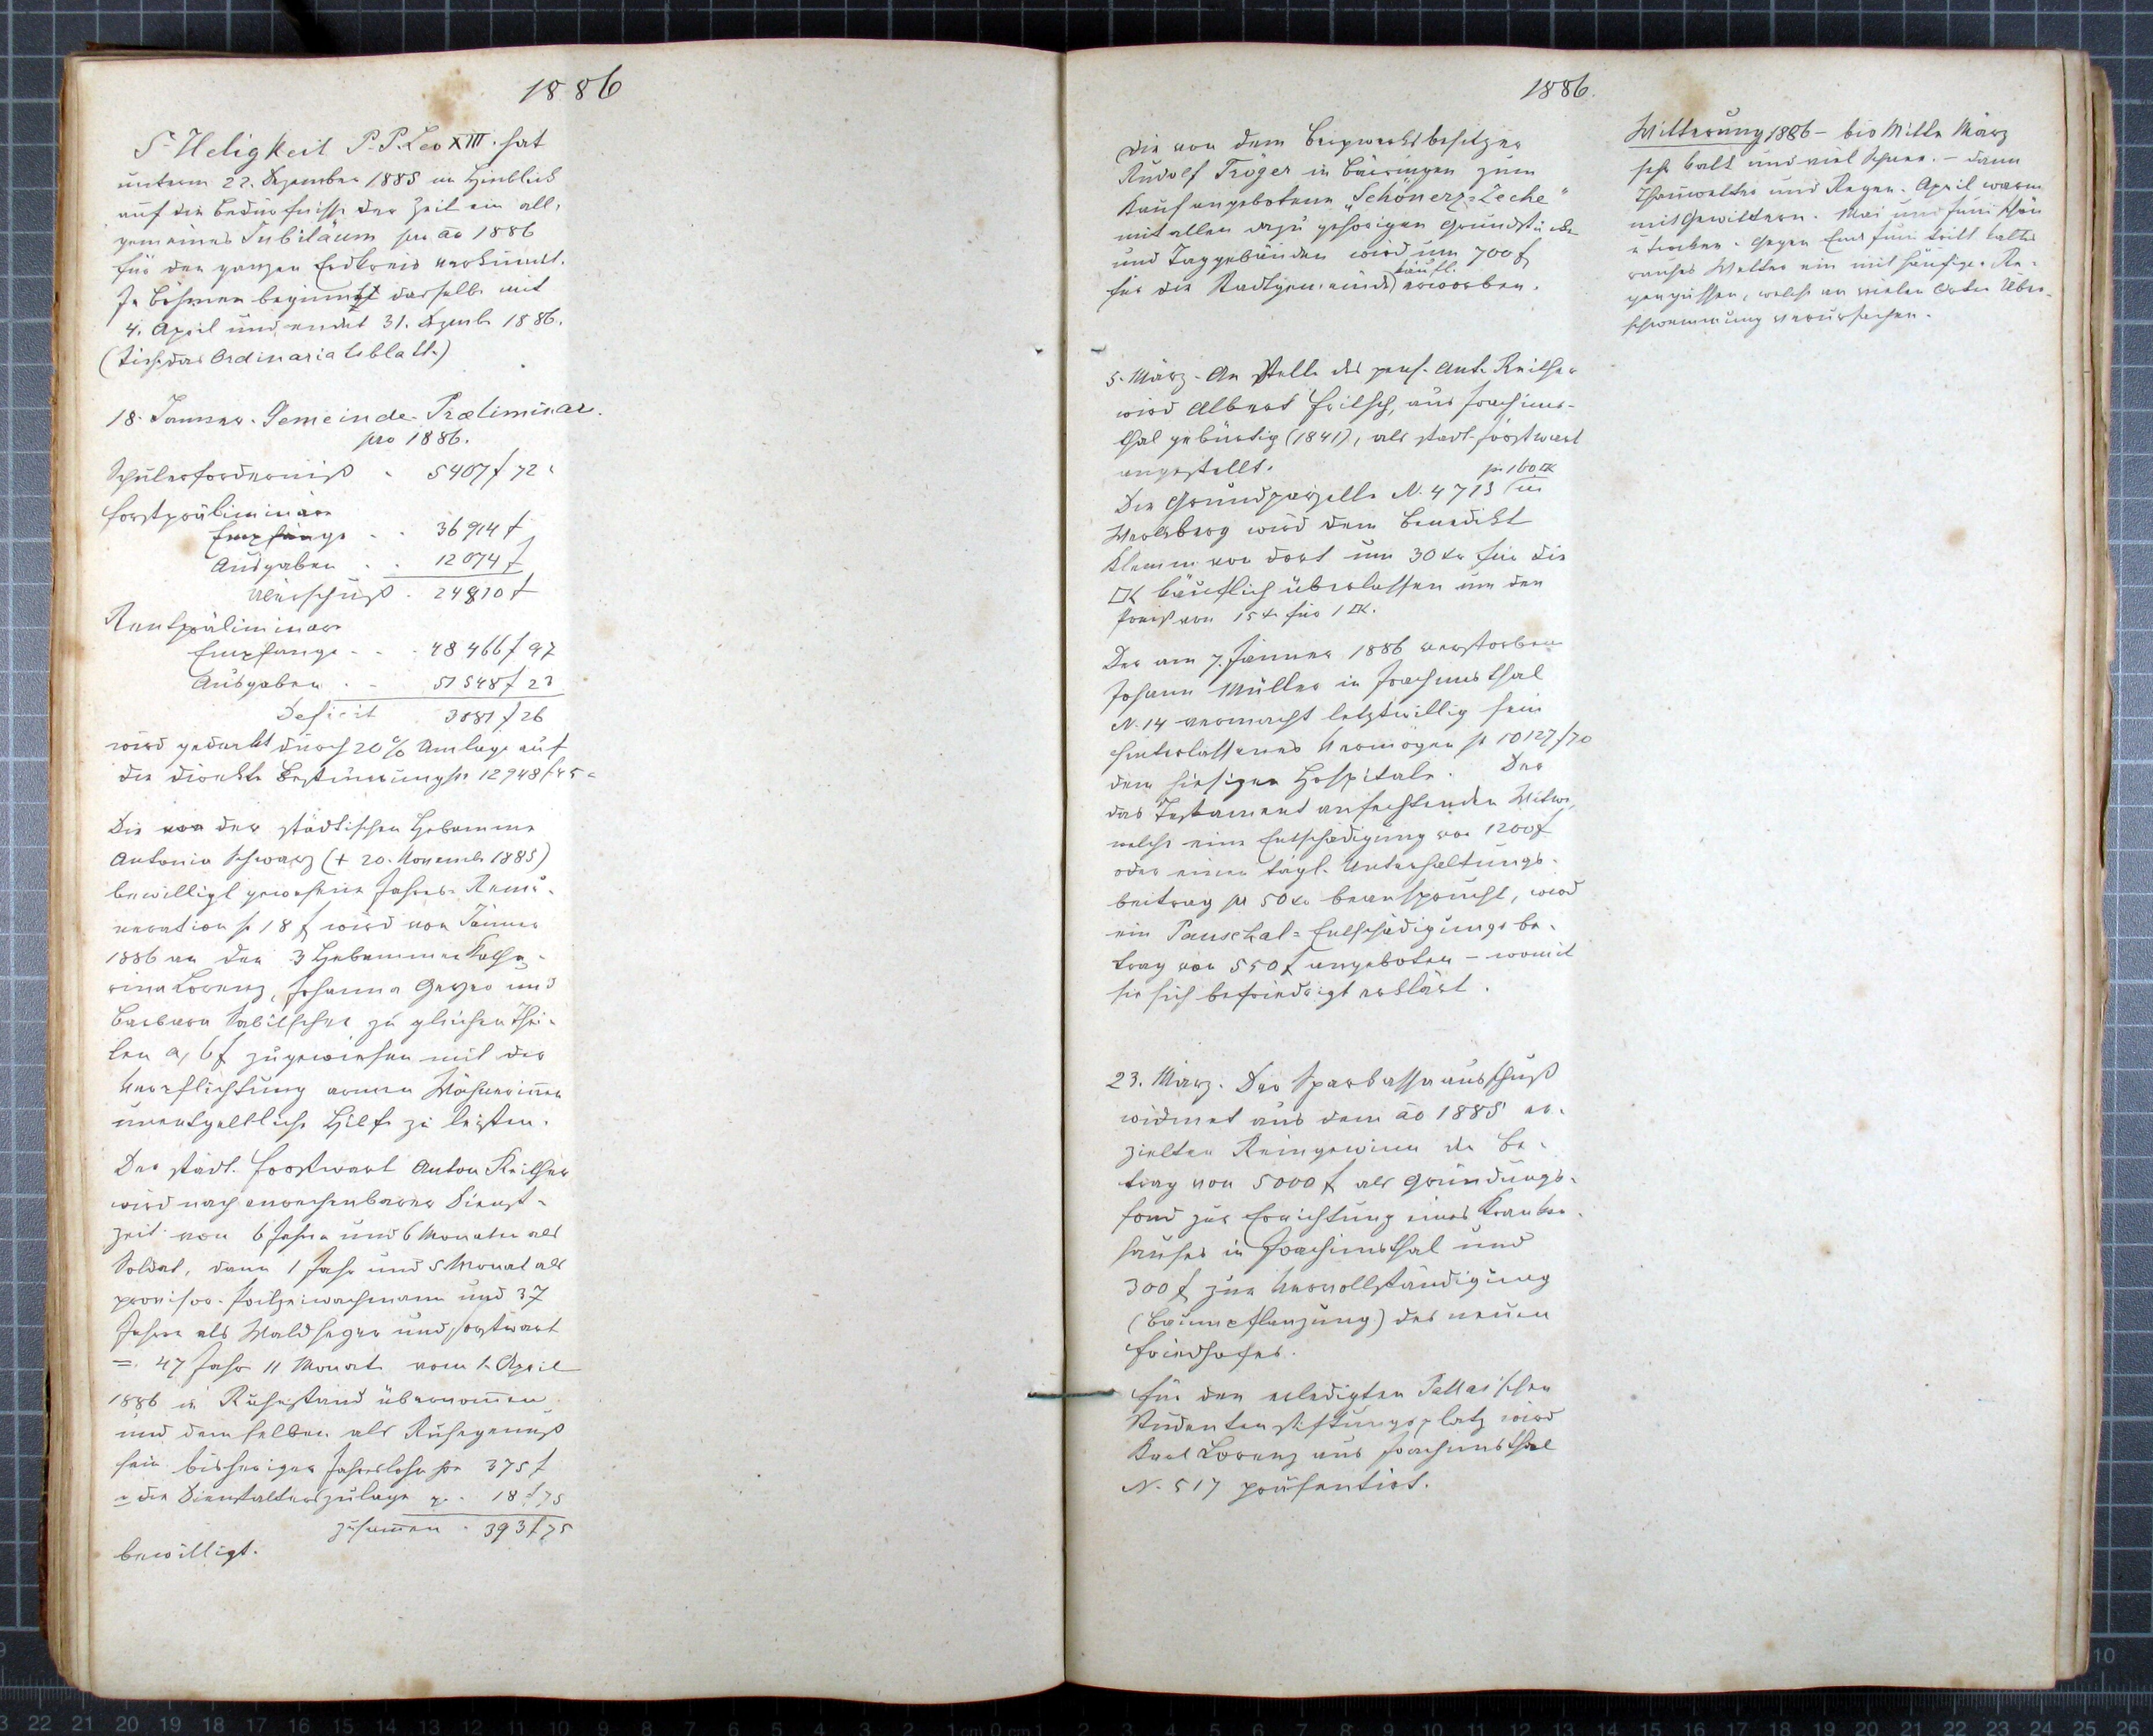 1886
S. Heligkeit P. P. Leo XIII. hat
unterm 22. Dezember 1885 in Hinblick
auf die Bedürfnisse der Zeit ein all-
gemeines Jubiläum pro ao 1886
für den ganzen Erdkreis verkündet.
In Böhmen beginnt dasselbe mit
4. April und endet 31. Dezemb. 1886.
(Siehe das Ordinariatsblatt.)
18. Jänner. Gemeinde-Präliminar.
pro 1886.
Schulerforderniß . 5407 f 72
Forstpräliminare
Empfänge . . 36914 f
Ausgaben . . 12074 f
Überschuß . 24810 f
Rentpräliminare
Empfänge . . . 48466 f 97
Ausgaben . . 51548 f 23
Deficit 3081 f 26
wird gedeckt durch 20% Umlage auf
die direkte Besteuerung pr 12948 f 45
Die der städtischen Hebamme
Antonia Schwarz († 20. Novemb. 1885)
bewilligt gewesene Jahres-Remu-
neration pr 18 f wird von Jänner
1886 an den 3 Hebammen Katha-
rina Lorenz, Johanna Geyer und
Barbara zu gleichen Thei-
len a, 6 f zugewiesen mit der
Verpflichtung armen Wöchnerinen
unentgeltliche Hilfe zu leisten.
Der städt. Forstwart Anton Reither
wird nach anrechenbarer Dienst-
zeit von 6 Jahren und 6 Monaten als
Soldat, dann 1 Jahr und 5 Monat als
provisor. Polizeiwachmann und 37
Jahren als Waldheger und Forstwart
=. 47 Jahr 11 Monat vom 1. April
1886 in Ruhestand übernommen
und demselben als Ruhegenuß
sein bisheriger Jahreslohn pr 375 f
u die Dienstalterszulage pr. 18 f 75
zusammen . 393 f 75
bewilligt.
1886.
Die von dem Bergwerksbesitzer
Rudolf Tröger in Bäringen zum
Kauf angebotene „Schönerz-Zeche"
mit allen dazu gehörigen Grundstücken
und Taggebäuden wird um 700 f
käufl.
für die Stadtgemeinde erworben.
5. März. An Stelle des pens. Ant. Reither
wird Albert Fritsch, aus Joachims-
thal gebürtig (1841), als städt. Forstwart
angestellt.
pr 160 □K
Die Grundparzelle N. 4713 in
Werlsberg wird dem Benedikt
Klemm von dort um 30 kr für die
□K käuflich überlassen um den
Preis von 15 kr für 1 □K.
Der am 7. Jänner 1886 verstorbene
Johann Müller in Joachimsthal
N. 14 vermacht letztwillig sein
hinterlassenes Vermögen pr 10127 f 70
dem hiesigen Hospitale. Der
das Testament anfechtenden Witwe,
welche eine Entschädigung von 1200 f
oder einen tägl. Unterhaltungs-
beitrag pr 50 kr beansprucht, wird
ein Pauschal-Entschädigungsbe-
trag von 550 f angeboten – womit
sie sich befriedigt erklärt.
23. März. Der Sparkasseausschuß
widmet aus dem ao 1885 er-
zielten Reingewinn den Be-
trag von 5000 f als Gründungs-
fond zur Errichtung eines Kranken-
hauses in Joachimsthal und
300 f zur Vervollständigung
(Baumpflanzung) des neuen
Friedhofes.
Für den erledigten Pallaischen
Studentenstiftungsplatz wird
Karl Lorenz aus Joachimsthal
N. 517 präsentirt.
Witterung 1886 – bis Mitte März
sehr kalt und viel Schnee. – dann
Thauwetter und Regen. April warm
mit Gewittern. Mai und Juni schön
u trocken. Gegen Ende Juni tritt kaltes
rauhes Wetter ein mit häufigen Re-
gengüssen, welche an vielen Orten Über-
schwemmung verursachen.